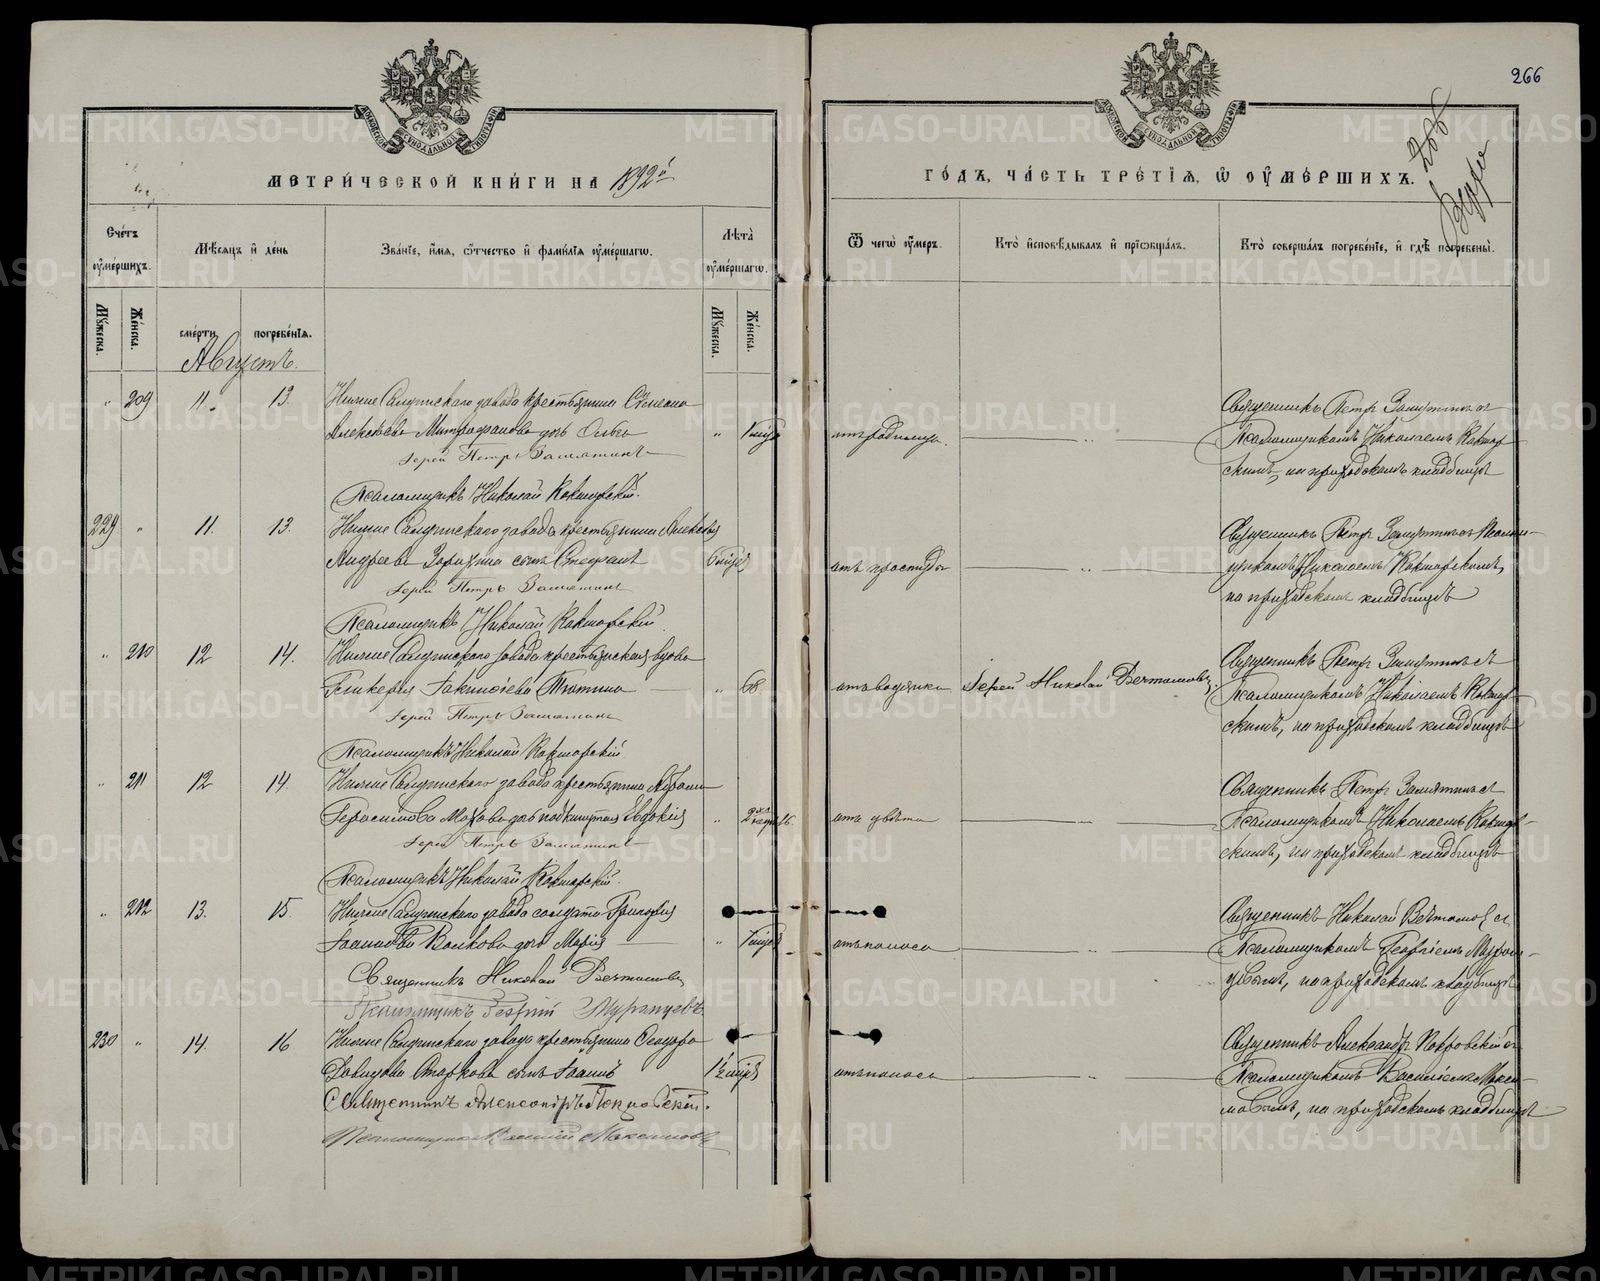 266
МЕТРИ́ЧЕСКОЙ КНИ́ГИ НА 1892й
ГО́ДЪ, ЧА́СТЬ ТРЕ́ТІѦ, Ѡ ОУ҆МЕ́РШИХЪ.
Сче́тъ оу҆ме́ршихъ.
Мѣ́сяцъ и де́нь
Зва́ніе, и҆́мя, ѻ҆́тчество и҆ фами́лія оу҆ме́ршагѡ.
Лѣ́та оу҆ме́ршагѡ.
Ѿ чегѡ̀ оу҆́меръ.
Кто̀ и҆сповѣ́дывалъ и҆ прїѡбща́лъ.
Кто̀ соверша́лъ погребе́ніе, и҆ гдѣ̀ погребены̀.
Мꙋ́жеска.
Же́нска.
сме́рти
погребе́нія.
Мꙋ́жеска.
Же́нска.
Августъ.
209 11. 13. Нижне Салдинскаго завода крестьянина Симеона
Алексѣева Митрофанова дочь Ольга
Іерей Петръ Замятинъ
Псаломщикъ Николай Кокшарскій.
отъ родимца.
Священникъ Петръ Замятинъ съ
Псаломщикомъ Николаемъ Кокшар-
скимъ, на приходскомъ кладбищѣ
229 11. 13. Нижне Салдинскаго завода крестьянина Алексѣя
Андреева Зорихина сынъ Стефанъ
Іерей Петръ Замятинъ
Псаломщикъ Николай Кокшарскій.
отъ простуды
Священникъ Петръ Замятинъ съ Псалом-
щикомъ Николаемъ Кокшарскимъ,
на приходскомъ кладбищѣ
210 12 14. Нижне Салдинскаго завода крестьянская вдова
Гликерия Іакимова 68
Іерей Петръ Замятинъ
Псаломщикъ Николай Кокшарскій
отъ водянки Іерей Николай Вечтомовъ
Священникъ Петръ Замятинъ съ
Псаломщикомъ Николаемъ Кокшар-
скимъ, на приходскомъ кладбищѣ
211 12 14. Нижне Салдинскаго завода крестьянина
Герасимова Махова дочь подкинутая Евдокія
Іерей Петръ Замятинъ
Псаломщикъ Николай Кокшарскій.
Священникъ Петръ Замятинъ съ
Псаломщикомъ Николаемъ Кокшар-
скимъ, на приходскомъ кладбищѣ
212 13. 15. Нижне Салдинскаго завода солдата Григорія
Іоаннова Волкова дочь Марія
Священникъ Николай Вечтомовъ
Псаломщикъ Георгій Мурзинцевъ
отъ поноса
Священникъ Николай Вечтомовъ съ
Псаломщикомъ Георгіемъ
на приходскомъ кладбищѣ
230 14. 16 Нижне Салдинскаго завода крестьянина Ѳеодора
Давидова Старкова сынъ Іоаннъ
Священникъ Александръ Покровскій.
Псаломщикъ Василій Максимовъ
отъ поноса
Священникъ Александръ Покровскій съ
Псаломщикомъ Василіемъ Макси-
мовымъ, на приходскомъ кладбищѣ
METRIKI.GASO-URAL.RU